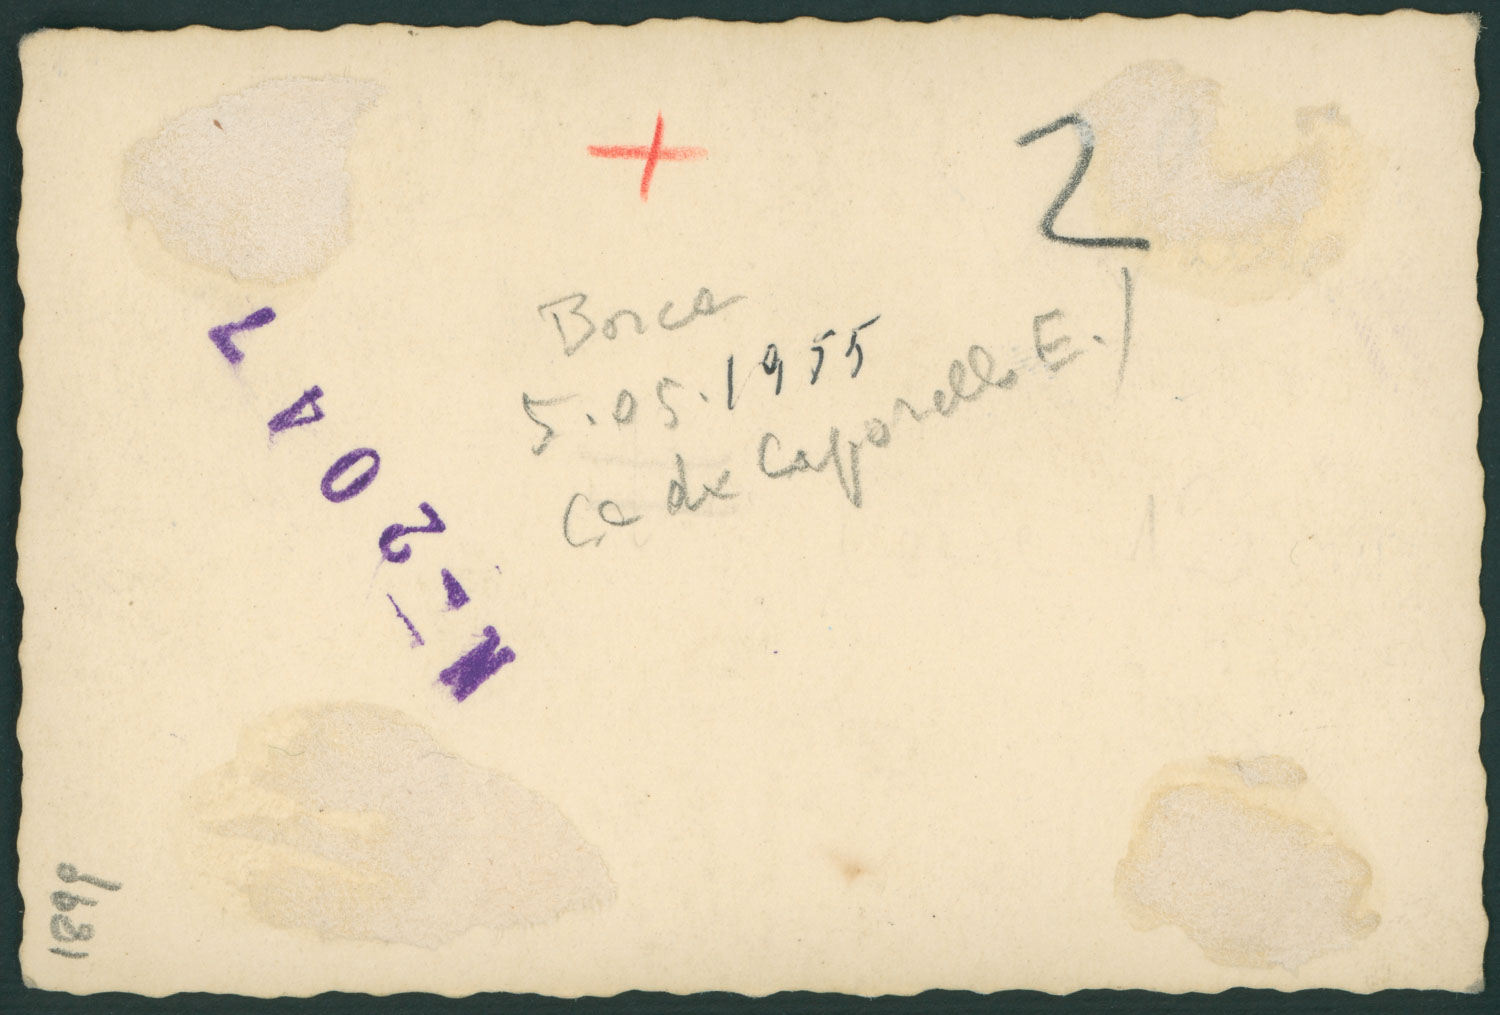 +
2
Borca
5.05.1955
(a dx Capporello E.)
N-2047
1899